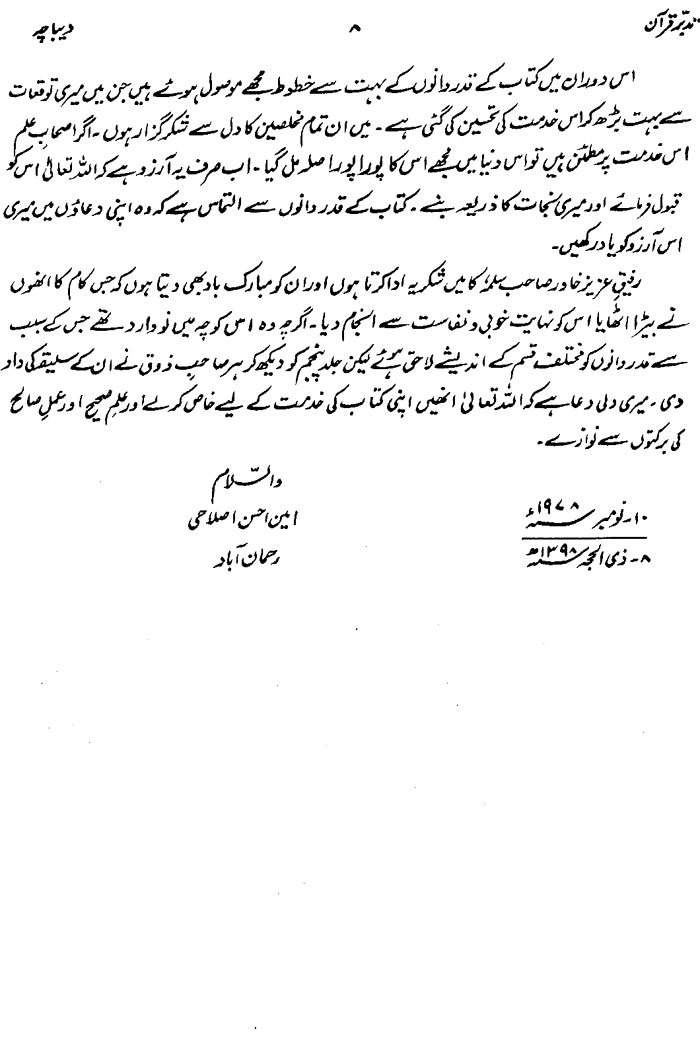 تدبرِ قرآن ۸ دیباچہ
اس دوران میں کتاب کے قدر دانوں کے بہت سے خطوط مجھے موصول ہوئے ہیں جن میں میری توقعات
سے بہت بڑھ کر اس خدمت کی تحسین کی گئی ہے۔ میں ان تمام مخلصین کا دل سے شکر گزار ہوں۔ اگر اصحابِ علم
اس خدمت پر مطمئن ہیں تو اس دنیا میں مجھے اس کا پورا پورا صلہ مل گیا۔ اب صرف یہ آرزو ہے کہ اللہ تعالیٰ اس کو
قبول فرمائے اور میری نجات کا ذریعہ بنے۔ کتاب کے قدر دانوں سے التماس ہے کہ وہ اپنی دعاؤں میں میری
اس آرزو کو یاد رکھیں۔
رفیقِ عزیز خاور صاحب سلمہٗ کا میں شکریہ ادا کرتا ہوں اور ان کو مبارک باد بھی دیتا ہوں کہ جس کام کا انھوں
نے بیڑا اٹھایا اس کو نہایت خوبی و نفاست سے انجام دیا۔ اگرچہ وہ اس کوچہ میں نووارد تھے جس کے سبب
سے قدر دانوں کو مختلف قسم کے اندیشے لاحق ہوئے لیکن جلد پنجم کو دیکھ کر ہر صاحبِ ذوق نے ان کے سلیقہ کی داد
دی۔ میری دلی دعا ہے کہ اللہ تعالیٰ انھیں اپنی کتاب کی خدمت کے لیے خاص کرلے اور علمِ صحیح اور عملِ صالح
کی برکتوں سے نوازے۔
والسّلام
امین احسن اصلاحی
رحمان آباد
۱۰۔ نومبر ۱۹۷۸ء
۸۔ ذی الحجہ ۱۳۹۸ھ